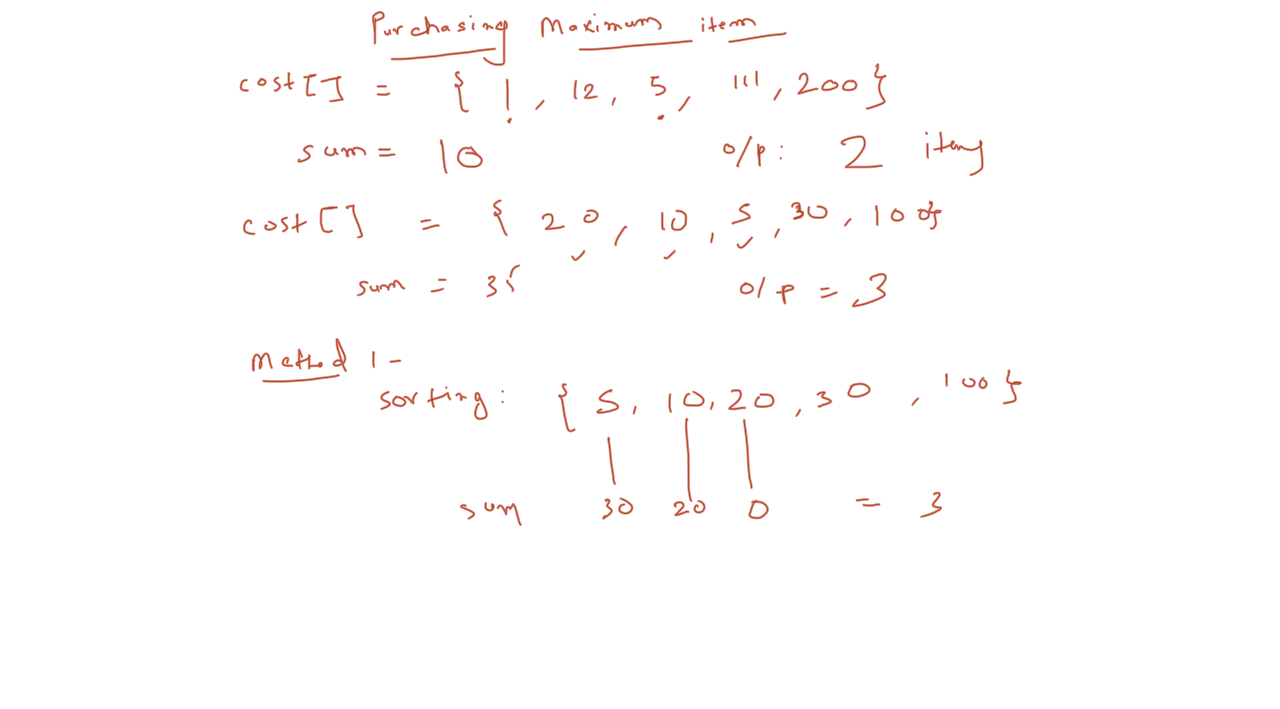 Purchasing Maximum item
cost[] = { 1, 12, 5, 111, 200}
sum = 10 o/p: 2 items
cost[] = { 20, 10, 5, 30, 100}
sum = 35 o/p = 3
Method 1 -
sorting: { 5, 10, 20, 30, 100}
sum 30 20 0 = 3